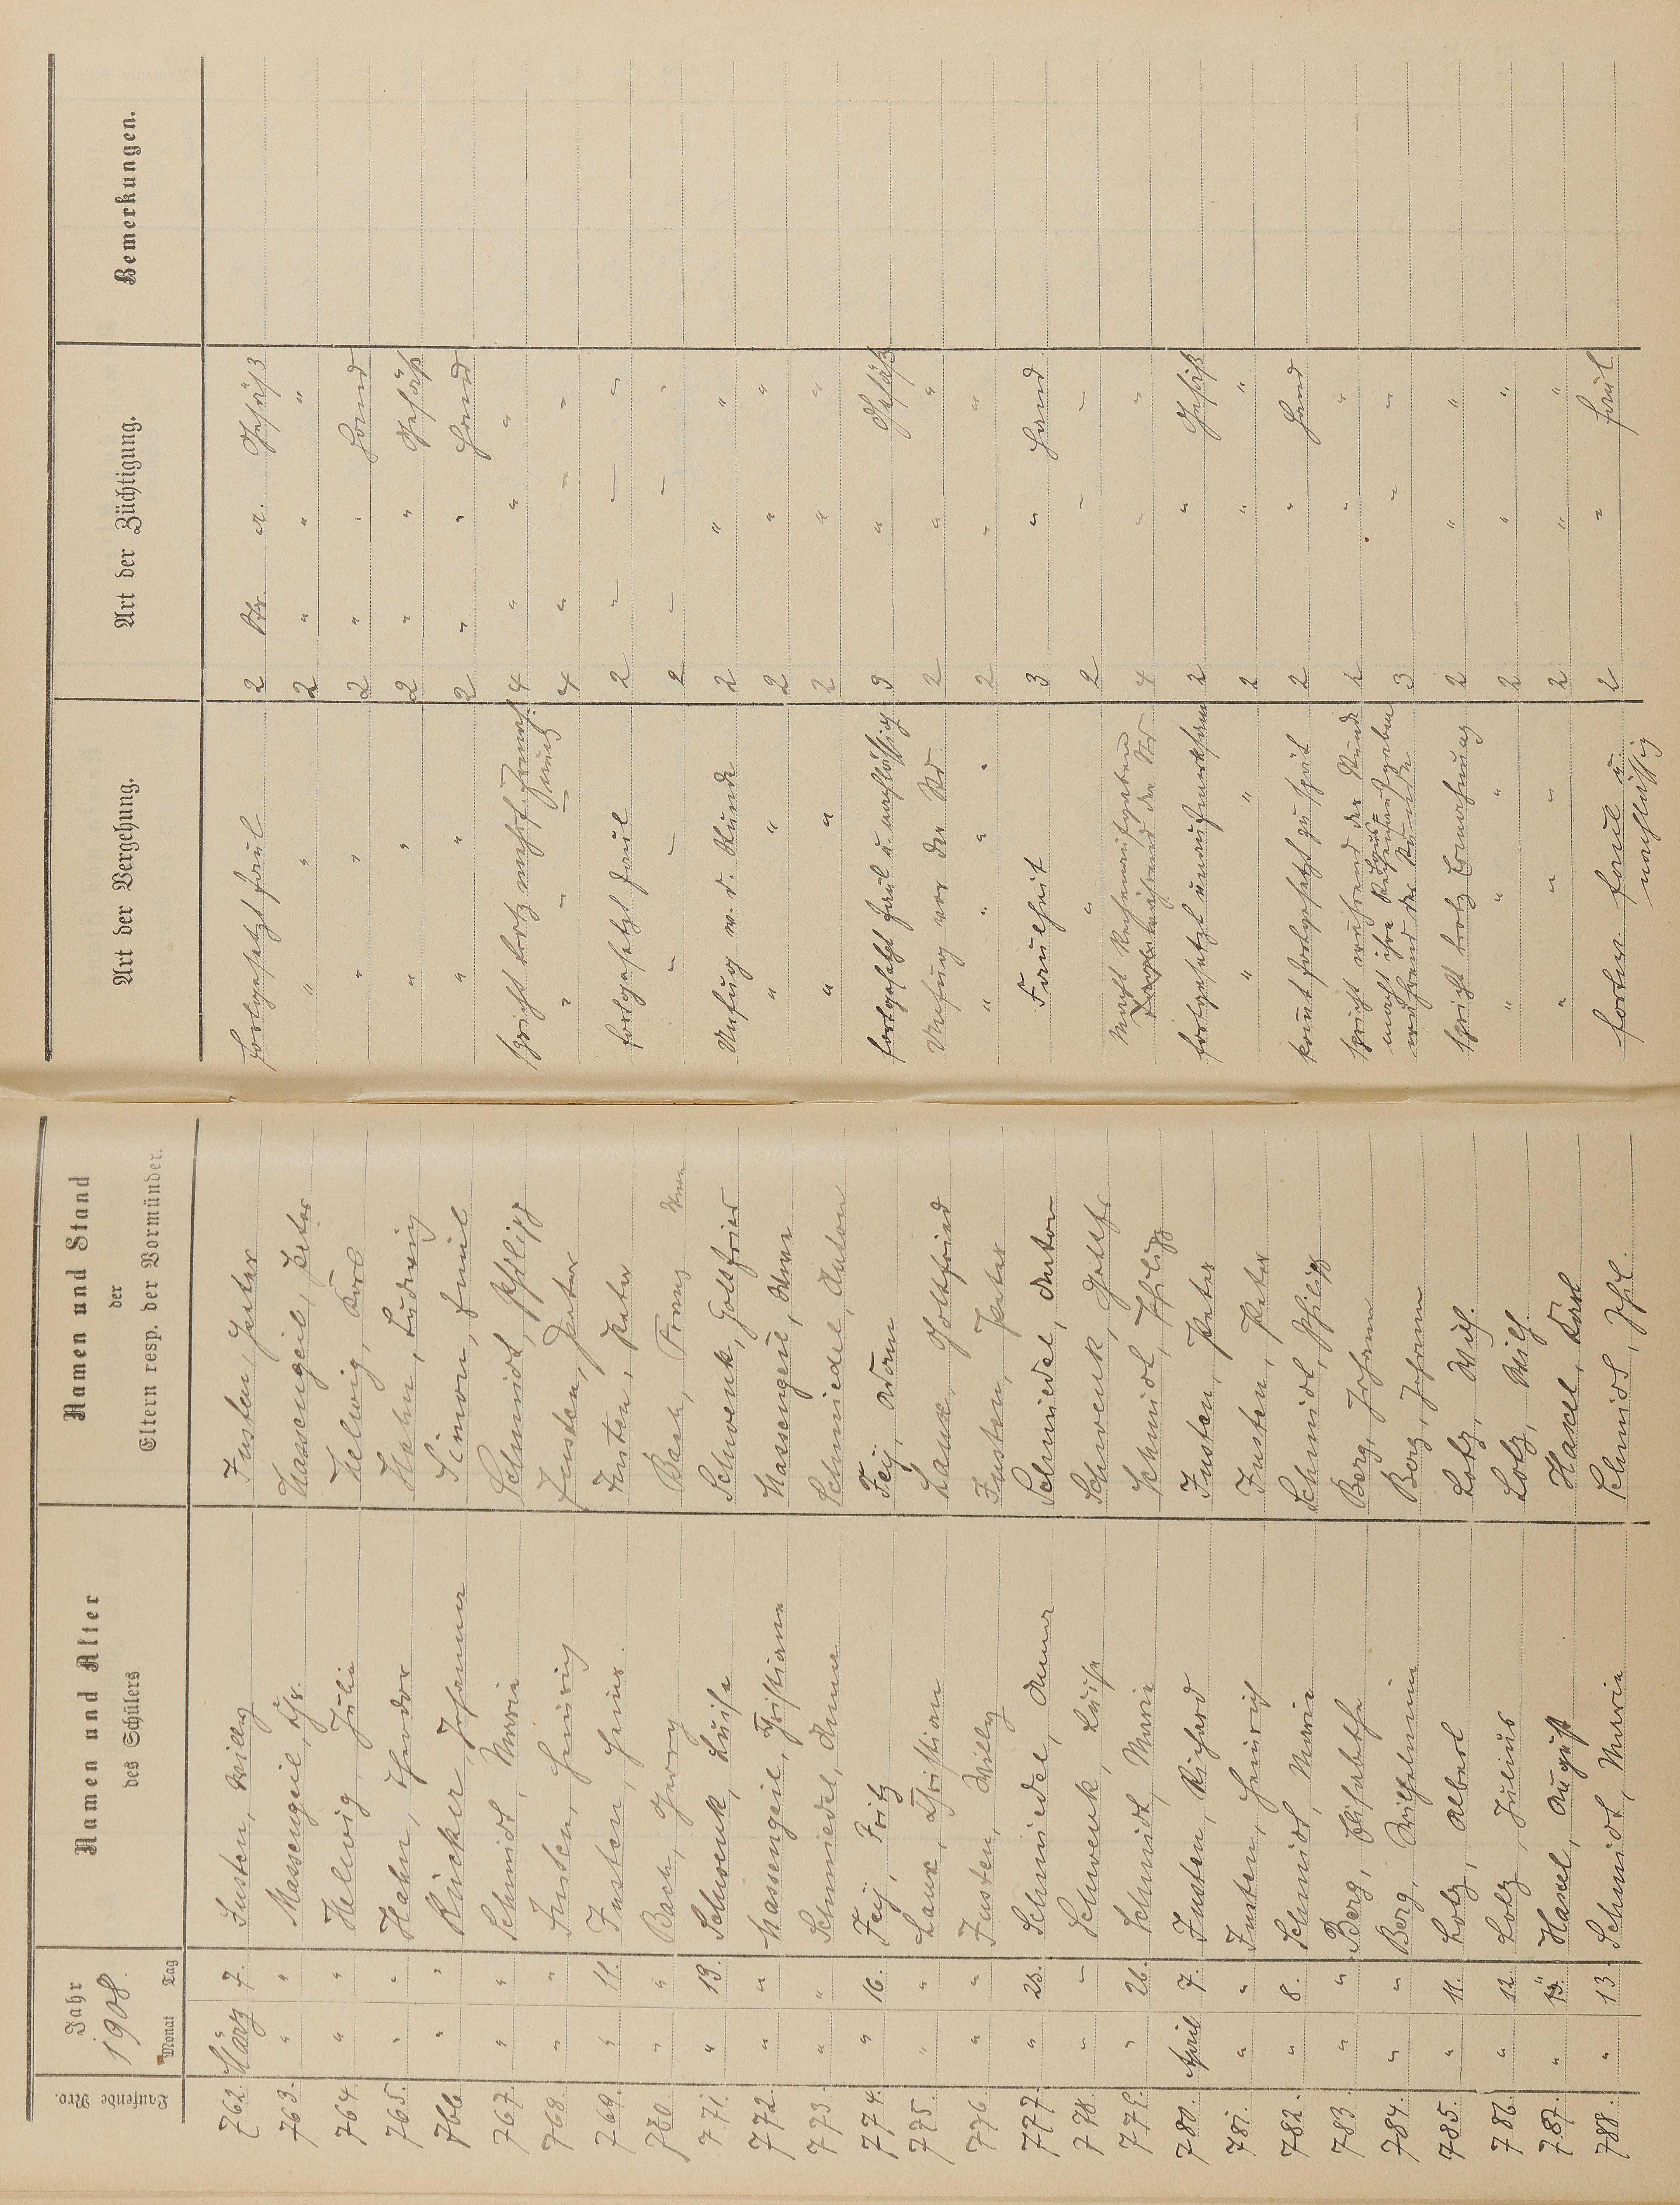 Laufende Nro.
Jahr
1908.
Monat Tag
Namen und Alter
des Schülers
Namen und Stand
der
Eltern resp. der Vormünder.
Art der Vergehung.
Art der Züchtigung.
Bemerkungen.
762. März 7. Justen, Willy Justen, Peter fortgesetzt faul 2 Str. a. Gesäß
763. " " Massengeil, Chr. Massengeil, Peter " " 2 " " "
764. " " Helwig, Julie Helwig, Karl " " 2 " " Hand
765. " " Hahn, Theodor Hahn, Ludwig " " 2 " " Gesäß
766 " " Rücker, Johanna Simon, Emil " " 2 " " Hand
767. " " Schmidt, Maria Schmidt, Philipp spricht trotz mehrf. Ermah= 4 " " "
nung
768. " " Justen, Heinrich Justen, Peter " " – 4 " " "
769. " 11. Justen, Heinr. Justen, Peter fortgesetzt faul 2 " – "
770. " " Bach, Georg Bach, Franz Wwe " – 2 – – "
771. " 13. Schwenk, Luise Schwenk, Gottfried Unfug w. d. Stunde 2 " "
772. " " Massengeil, Christiane Massengeil, Wwe " " 2 " "
773. " " Schmiedel, Anna Schmiedel, Anton " " 2 " "
774. " 16. Fey, Fritz Fey, Adam fortgesetzt faul u. nachlässig 3 " Gesäß
775. " " Laux, Christian Laux, Gottfried Unfug vor der Std 2 " "
776. " " Justen, Willy Justen, Peter " " " " 2 " "
777. " 23. Schmiedel, Anna Schmiedel, Anton Faulheit 3 " Hand
778. " " Schwenk, Luise Schwenk, Gottfr. " 2 " –
779. " 26. Schmidt, Maria Schmidt, Philipp Macht Rechenaufgaben
während der Std 4 " "
780. April 7. Justen, Richard Justen, Peter fortgesetzt unaufmerksam 2 " Gesäß
781. " " Justen, Heinrich Justen, Peter " " 2 " "
782. " 8. Schmidt, Maria Schmidt, Philipp komt fortgesetzt zu spät 2 " Hand
783. " " Berg, Elisabethe Berg, Johann spricht während der Stunde 2 " "
784. " " Berg, Wilhelmine Berg, Johann macht ihre Hausaufgaben
während der Stunde 3 " "
785. " 11. Lotz, Albert Lotz, Wilh. spricht trotz Ermahnung 2 " "
786. " 12. Lotz, Julius Lotz, Wilh. " " " 2 " "
787. " 13. Hasel, August Hasel, Karl " " " 2 " "
788. " 13. Schmidt, Maria Schmidt, Phil. fortw. faul u. 2 " faul
nachlässig